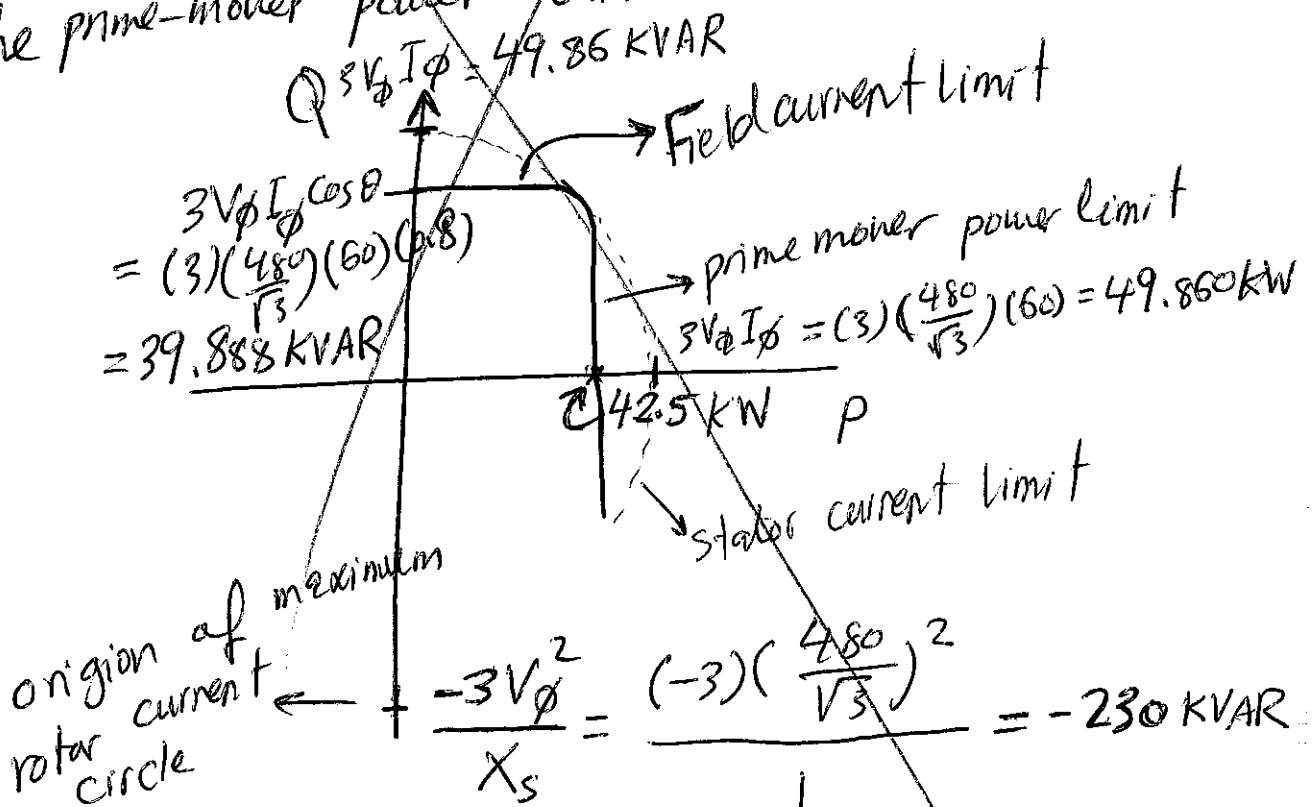 he prime-mover power
Q 3VφIφ = 49.86 KVAR
Field current limit
3VφIφ Cosθ
= (3)(480/√3)(60)(0.8)
= 39.888 KVAR
prime mover power limit
3VφIφ = (3)(480/√3)(60) = 49.860 KW
42.5 KW P
stator current limit
origion of maximum
rotor current
circle
-3Vφ²/Xs = (-3)(480/√3)²/1 = -230 KVAR